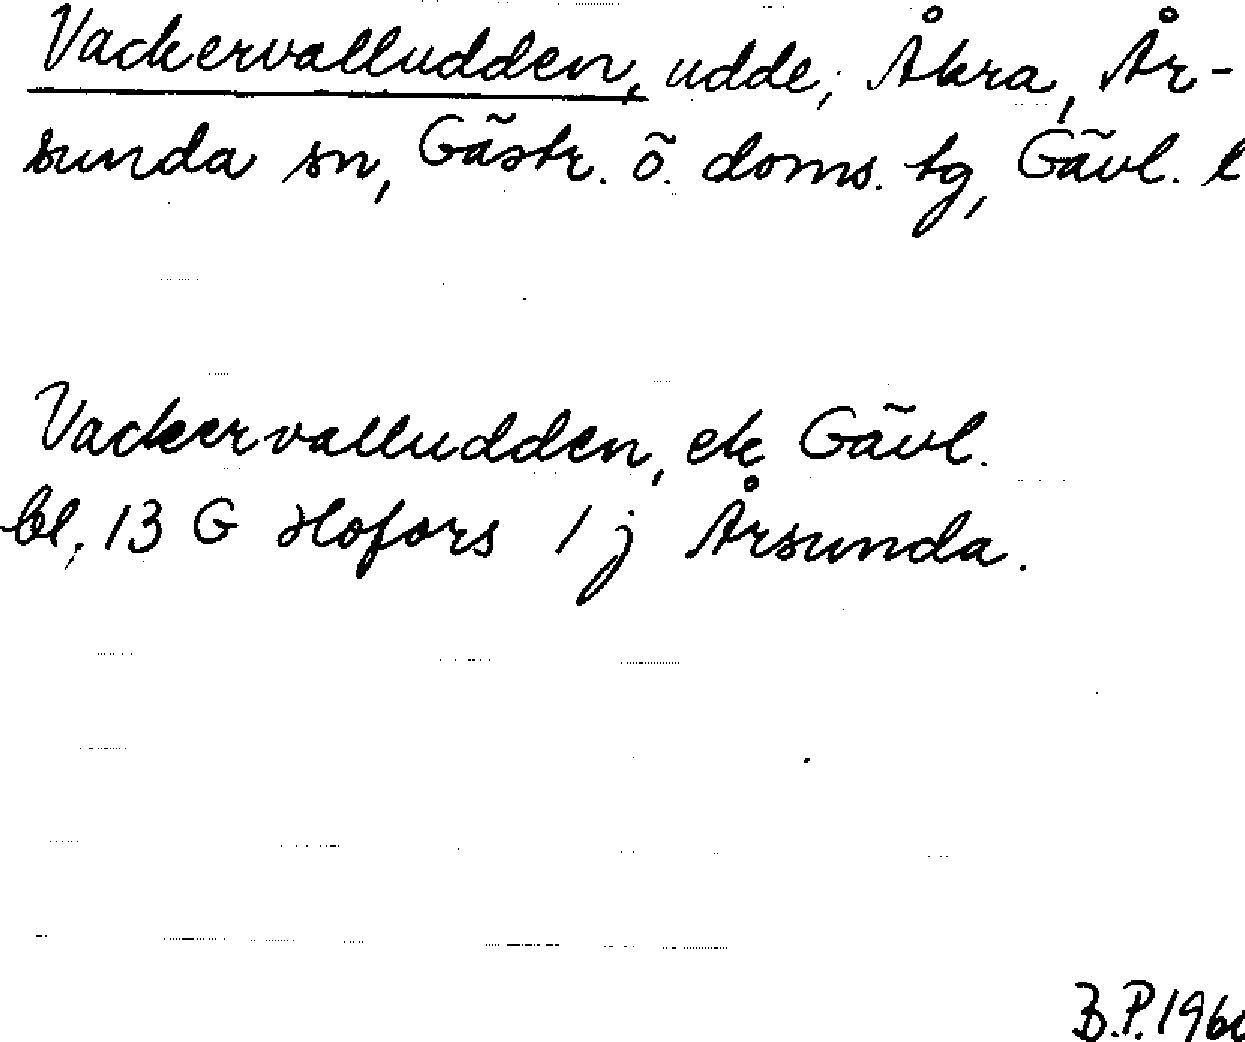 Vackervalludden, udde; Åkra, År-
sunda sn, Gästr. ö. doms. tg, Gävl. l
Vackervalludden, ek Gävl.
bl, 13 G Hofors 1 j Årsunda.
B.P.